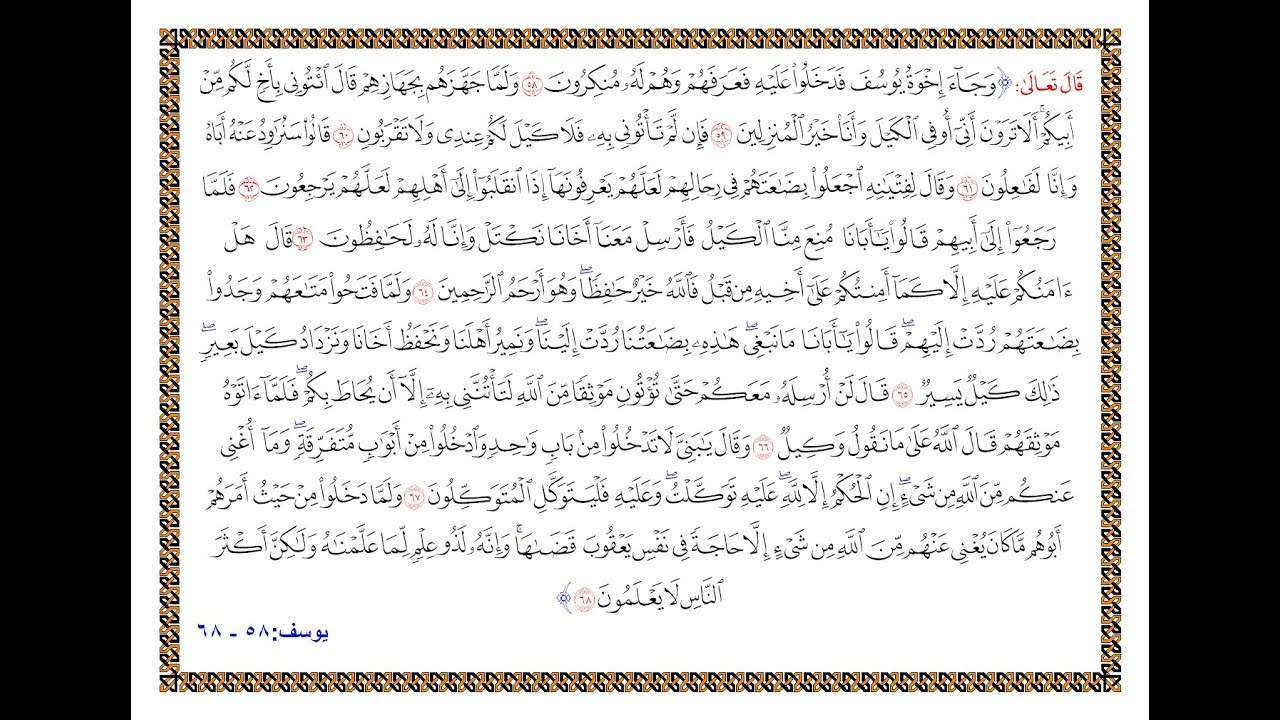 قَالَ تَعَالَىٰ: ﴿وَجَآءَ إِخۡوَةُ يُوسُفَ فَدَخَلُواْ عَلَيۡهِ فَعَرَفَهُمۡ وَهُمۡ لَهُۥ مُنكِرُونَ ٥٨ وَلَمَّا جَهَّزَهُم بِجَهَازِهِمۡ قَالَ ٱئۡتُونِي بِأَخٖ لَّكُم مِّنۡ
أَبِيكُمۡۚ أَلَا تَرَوۡنَ أَنِّيٓ أُوفِي ٱلۡكَيۡلَ وَأَنَا۠ خَيۡرُ ٱلۡمُنزِلِينَ ٥٩ فَإِن لَّمۡ تَأۡتُونِي بِهِۦ فَلَا كَيۡلَ لَكُمۡ عِندِي وَلَا تَقۡرَبُونِ ٦٠ قَالُواْ سَنُرَٰوِدُ عَنۡهُ أَبَاهُ
وَإِنَّا لَفَٰعِلُونَ ٦١ وَقَالَ لِفِتۡيَٰنِهِ ٱجۡعَلُواْ بِضَٰعَتَهُمۡ فِي رِحَالِهِمۡ لَعَلَّهُمۡ يَعۡرِفُونَهَآ إِذَا ٱنقَلَبُوٓاْ إِلَىٰٓ أَهۡلِهِمۡ لَعَلَّهُمۡ يَرۡجِعُونَ ٦٢ فَلَمَّا
رَجَعُوٓاْ إِلَىٰٓ أَبِيهِمۡ قَالُواْ يَٰٓأَبَانَا مُنِعَ مِنَّا ٱلۡكَيۡلُ فَأَرۡسِلۡ مَعَنَآ أَخَانَا نَكۡتَلۡ وَإِنَّا لَهُۥ لَحَٰفِظُونَ ٦٣ قَالَ هَلۡ
ءَامَنُكُمۡ عَلَيۡهِ إِلَّا كَمَآ أَمِنتُكُمۡ عَلَىٰٓ أَخِيهِ مِن قَبۡلُ فَٱللَّهُ خَيۡرٌ حَٰفِظٗاۖ وَهُوَ أَرۡحَمُ ٱلرَّٰحِمِينَ ٦٤ وَلَمَّا فَتَحُواْ مَتَٰعَهُمۡ وَجَدُواْ
بِضَٰعَتَهُمۡ رُدَّتۡ إِلَيۡهِمۡۖ قَالُواْ يَٰٓأَبَانَا مَا نَبۡغِيۖ هَٰذِهِۦ بِضَٰعَتُنَا رُدَّتۡ إِلَيۡنَاۖ وَنَمِيرُ أَهۡلَنَا وَنَحۡفَظُ أَخَانَا وَنَزۡدَادُ كَيۡلَ بَعِيرٖۖ
ذَٰلِكَ كَيۡلٞ يَسِيرٞ ٦٥ قَالَ لَنۡ أُرۡسِلَهُۥ مَعَكُمۡ حَتَّىٰ تُؤۡتُونِ مَوۡثِقٗا مِّنَ ٱللَّهِ لَتَأۡتُنَّنِي بِهِۦٓ إِلَّآ أَن يُحَاطَ بِكُمۡۖ فَلَمَّآ ءَاتَوۡهُ
مَوۡثِقَهُمۡ قَالَ ٱللَّهُ عَلَىٰ مَا نَقُولُ وَكِيلٞ ٦٦ وَقَالَ يَٰبَنِيَّ لَا تَدۡخُلُواْ مِنۢ بَابٖ وَٰحِدٖ وَٱدۡخُلُواْ مِنۡ أَبۡوَٰبٖ مُّتَفَرِّقَةٖۖ وَمَآ أُغۡنِي
عَنكُم مِّنَ ٱللَّهِ مِن شَيۡءٍۖ إِنِ ٱلۡحُكۡمُ إِلَّا لِلَّهِۖ عَلَيۡهِ تَوَكَّلۡتُۖ وَعَلَيۡهِ فَلۡيَتَوَكَّلِ ٱلۡمُتَوَكِّلُونَ ٦٧ وَلَمَّا دَخَلُواْ مِنۡ حَيۡثُ أَمَرَهُمۡ
أَبُوهُم مَّا كَانَ يُغۡنِي عَنۡهُم مِّنَ ٱللَّهِ مِن شَيۡءٍ إِلَّا حَاجَةٗ فِي نَفۡسِ يَعۡقُوبَ قَضَىٰهَاۚ وَإِنَّهُۥ لَذُو عِلۡمٖ لِّمَا عَلَّمۡنَٰهُ وَلَٰكِنَّ أَكۡثَرَ
ٱلنَّاسِ لَا يَعۡلَمُونَ ٦٨﴾
يوسف: ٥٨ - ٦٨